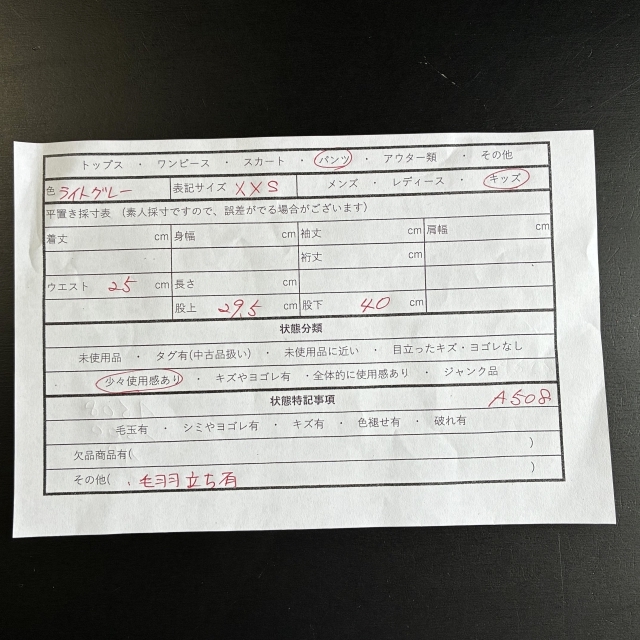 トップス ・ ワンピース ・ スカート ・ パンツ ・ アウター類 ・ その他
色 ライトグレー 表記サイズ XXS メンズ ・ レディース ・ キッズ
平置き採寸表 （素人採寸ですので、誤差がでる場合がございます）
着丈 cm 身幅 cm 袖丈 cm 肩幅 cm
裄丈 cm
ウエスト 25 cm 長さ cm
股上 29.5 cm 股下 40 cm
状態分類
未使用品 ・ タグ有(中古品扱い) ・ 未使用品に近い ・ 目立ったキズ・ヨゴレなし
少々使用感あり ・ キズやヨゴレ有 ・全体的に使用感あり ・ ジャンク品
状態特記事項 A508
毛玉有 ・ シミやヨゴレ有 ・ キズ有 ・ 色褪せ有 ・ 破れ有
欠品商品有( )
その他( ・毛羽立ち有 )